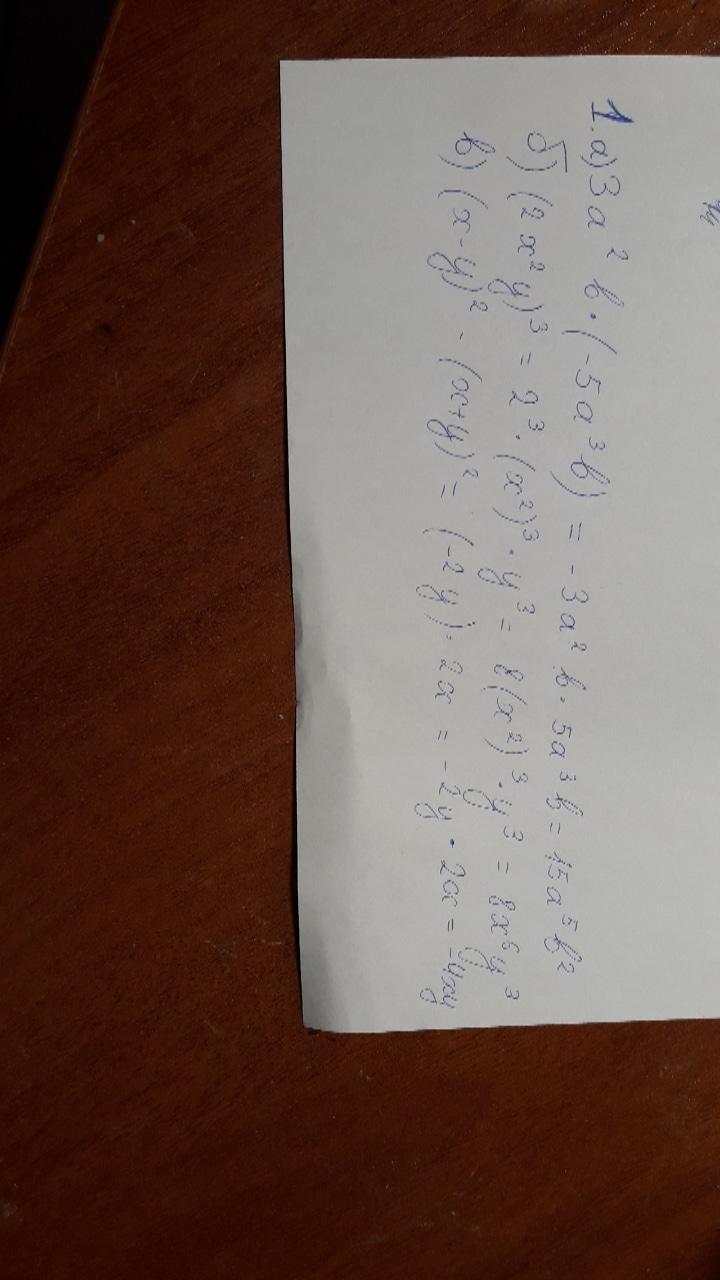 1. а) 3a² b · (-5a³b) = -3a² b · 5a³b = 15a⁵b²
б) (2x²y)³ = 2³ · (x²)³ · y³ = 8(x²)³ · y³ = 8x⁶y³
в) (x-y)² - (x+y)² = (-2y) · 2x = -2y · 2x = -4xy